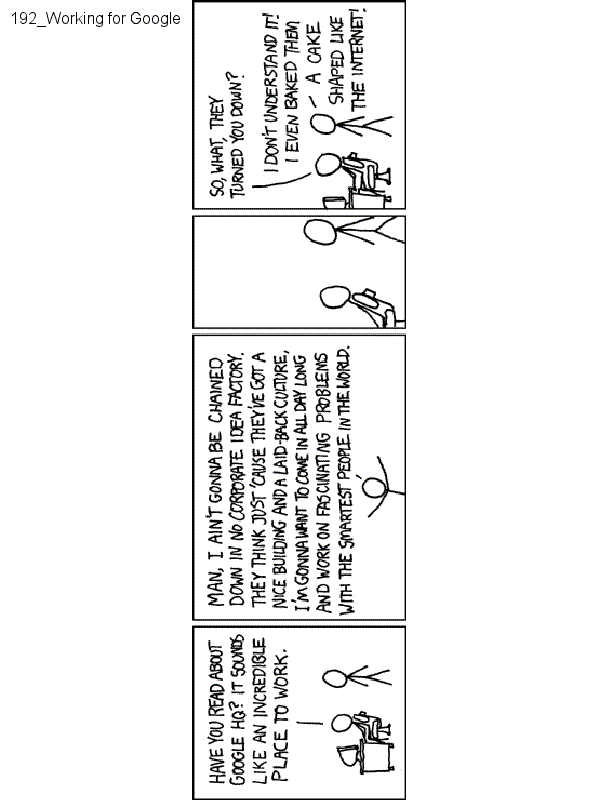 192_Working for Google
HAVE YOU READ ABOUT
GOOGLE HQ? IT SOUNDS
LIKE AN INCREDIBLE
PLACE TO WORK.
MAN, I AIN'T GONNA BE CHAINED
DOWN IN NO CORPORATE IDEA FACTORY.
THEY THINK JUST 'CAUSE THEY'VE GOT A
NICE BUILDING AND A LAID-BACK CULTURE,
I'M GONNA WANT TO COME IN ALL DAY LONG
AND WORK ON FASCINATING PROBLEMS
WITH THE SMARTEST PEOPLE IN THE WORLD.
SO, WHAT, THEY
TURNED YOU DOWN?
I DON'T UNDERSTAND IT!
I EVEN BAKED THEM
A CAKE
SHAPED LIKE
THE INTERNET!